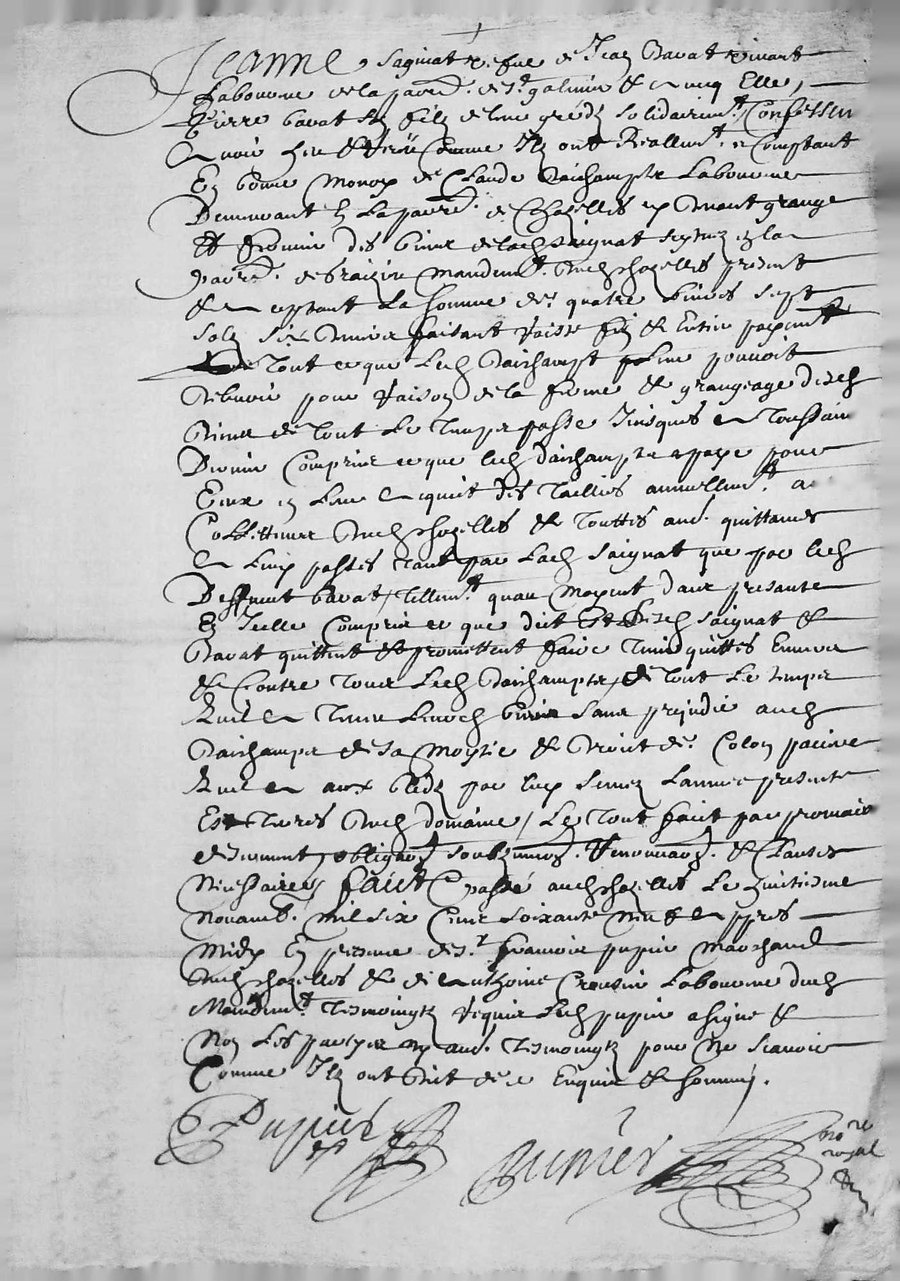 Jeanne Saginat vefve de Jean Bavat vivant
Laboureur de la parr. de St galmier et avecq Elle
Pierre bavat son filz de leur grédz solidairemt Confessent
Avoir heu et receu Comme Ilz ont Reallemt et Comptant
En bonne Monoye de Claude Daichampts Laboureur
Demeurant en La parr. de Chazelles
et fermier des biens de lad Saignat
parr. de mandemt dud chazelles present
et acceptant La somme de quatre Livres sept
solz six deniers faisant reste fin et Entier payemt
de Tout ce que Led Daichampt pouvoit
Debvoir pour raison de la ferme et grangeage desd
biens de Tout Le Temps passé Jusques a Toussain
Dernier Comprins ce que led daichampts a payé pour
Eux en Leur acquit des Tailles annuellemt a
Collecteurs dud chazelles et Touttes autres quittances
a Luy passées tant par Lad saignat que par led
Deffunct bavat Tellemt quau Moyent dans presante
En Icelle Comprins ce que dict Est lesd saignat et
Bavat quittent et promettent faire Tenir quittes Envers
et Contre Tous Led Daichampts de Tout Le temps
quil a Tenus Lesd biens sans prejudice aud
Daichampts de sa Moytié et droict de Colon
quil a aux bledz par luy semez Lannee presente
Es Terres dud domaine Le Tout faict par promais
serment obligaon soubzmission Renonciaon et Clauses
Necessaires faict et passé aud chazelles Le huitiesme
Novamb. Mil six Cens soixante Neuf appres
Midy En presence de sr francois pupier Marchand
dud chazelles et de anthoine Crousier Laboureur dud
Mandemt Tesmoingtz requis Led pupier a signé et
Non Les partyes ny aud. Tesmoingtz pour Ne Scavoir
Comme Ilz ont dict de ce Enquis et sommes.
Pupier
Pupier no re
royal